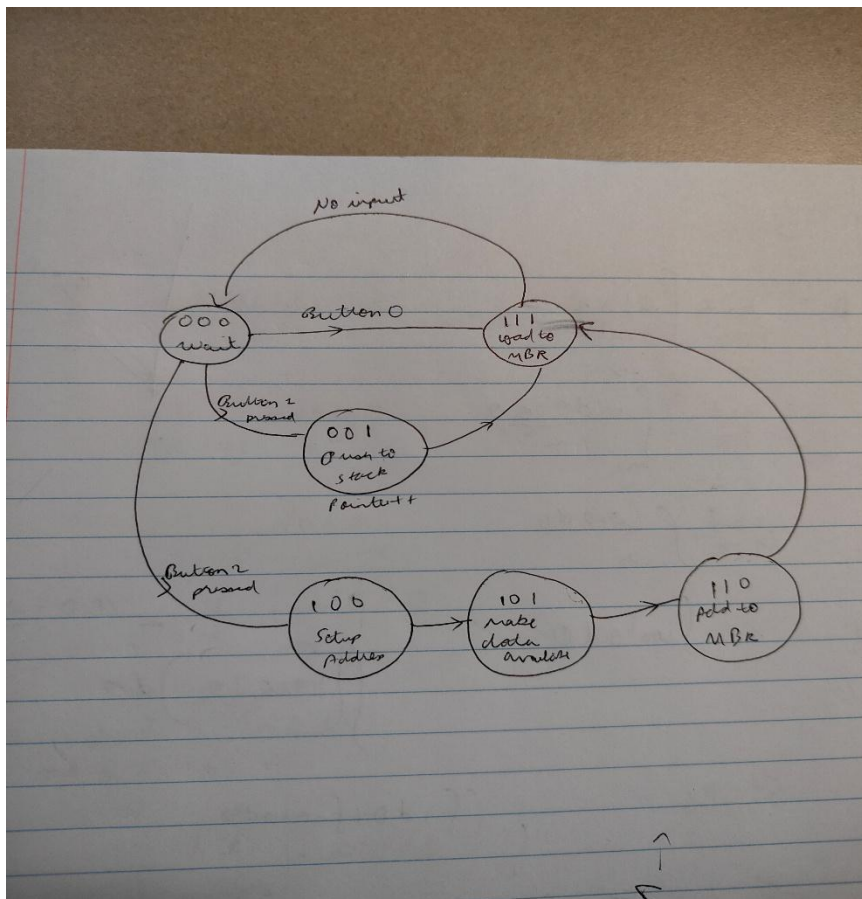 No input
000
wait
Button 0
111
load to
MBR
Button 2
pressed
001
Push to
stack
Pointer++
Button 2
pressed
100
Setup
Address
101
Make
data
available
110
Add to
MBR